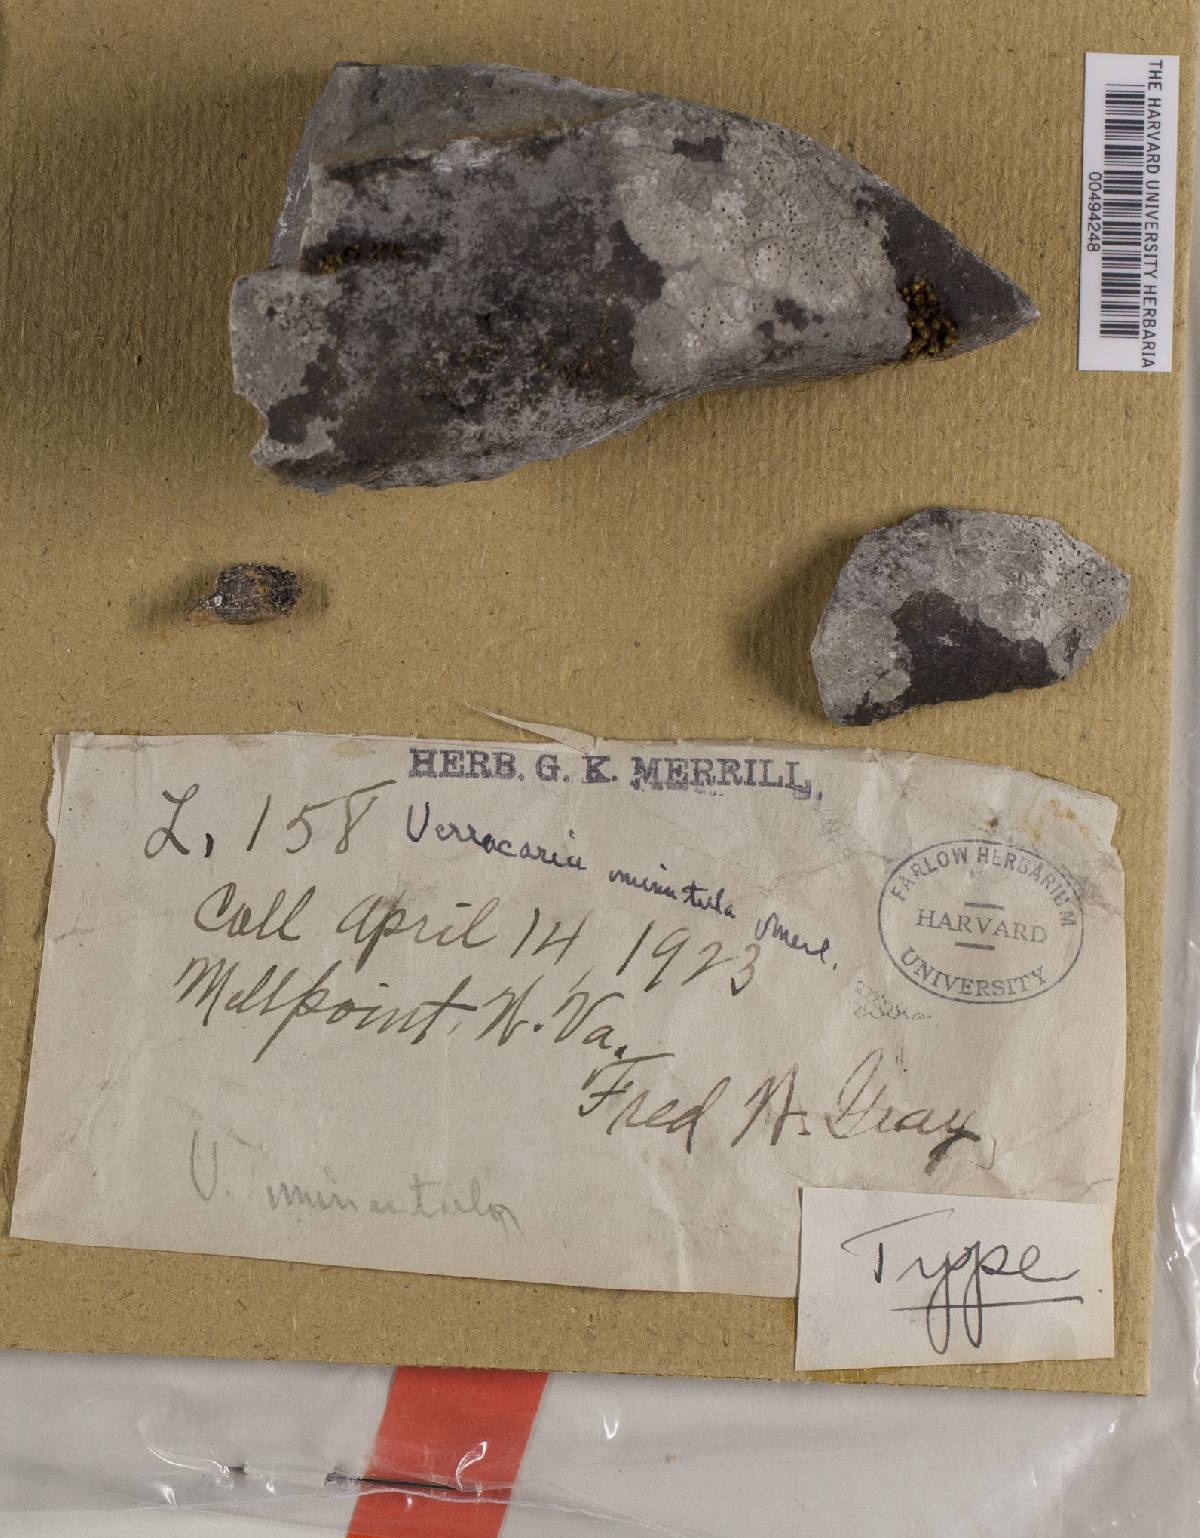 THE HARVARD UNIVERSITY HERBARIA
00494248
HERB. G. K. MERRILL.
L, 158 Verrucaria minutula Merl.
Coll April 14, 1923
Millpoint, W. Va.
Fred W. Gray,
FARLOW HERBARIUM
HARVARD
UNIVERSITY
V. minutula
Type